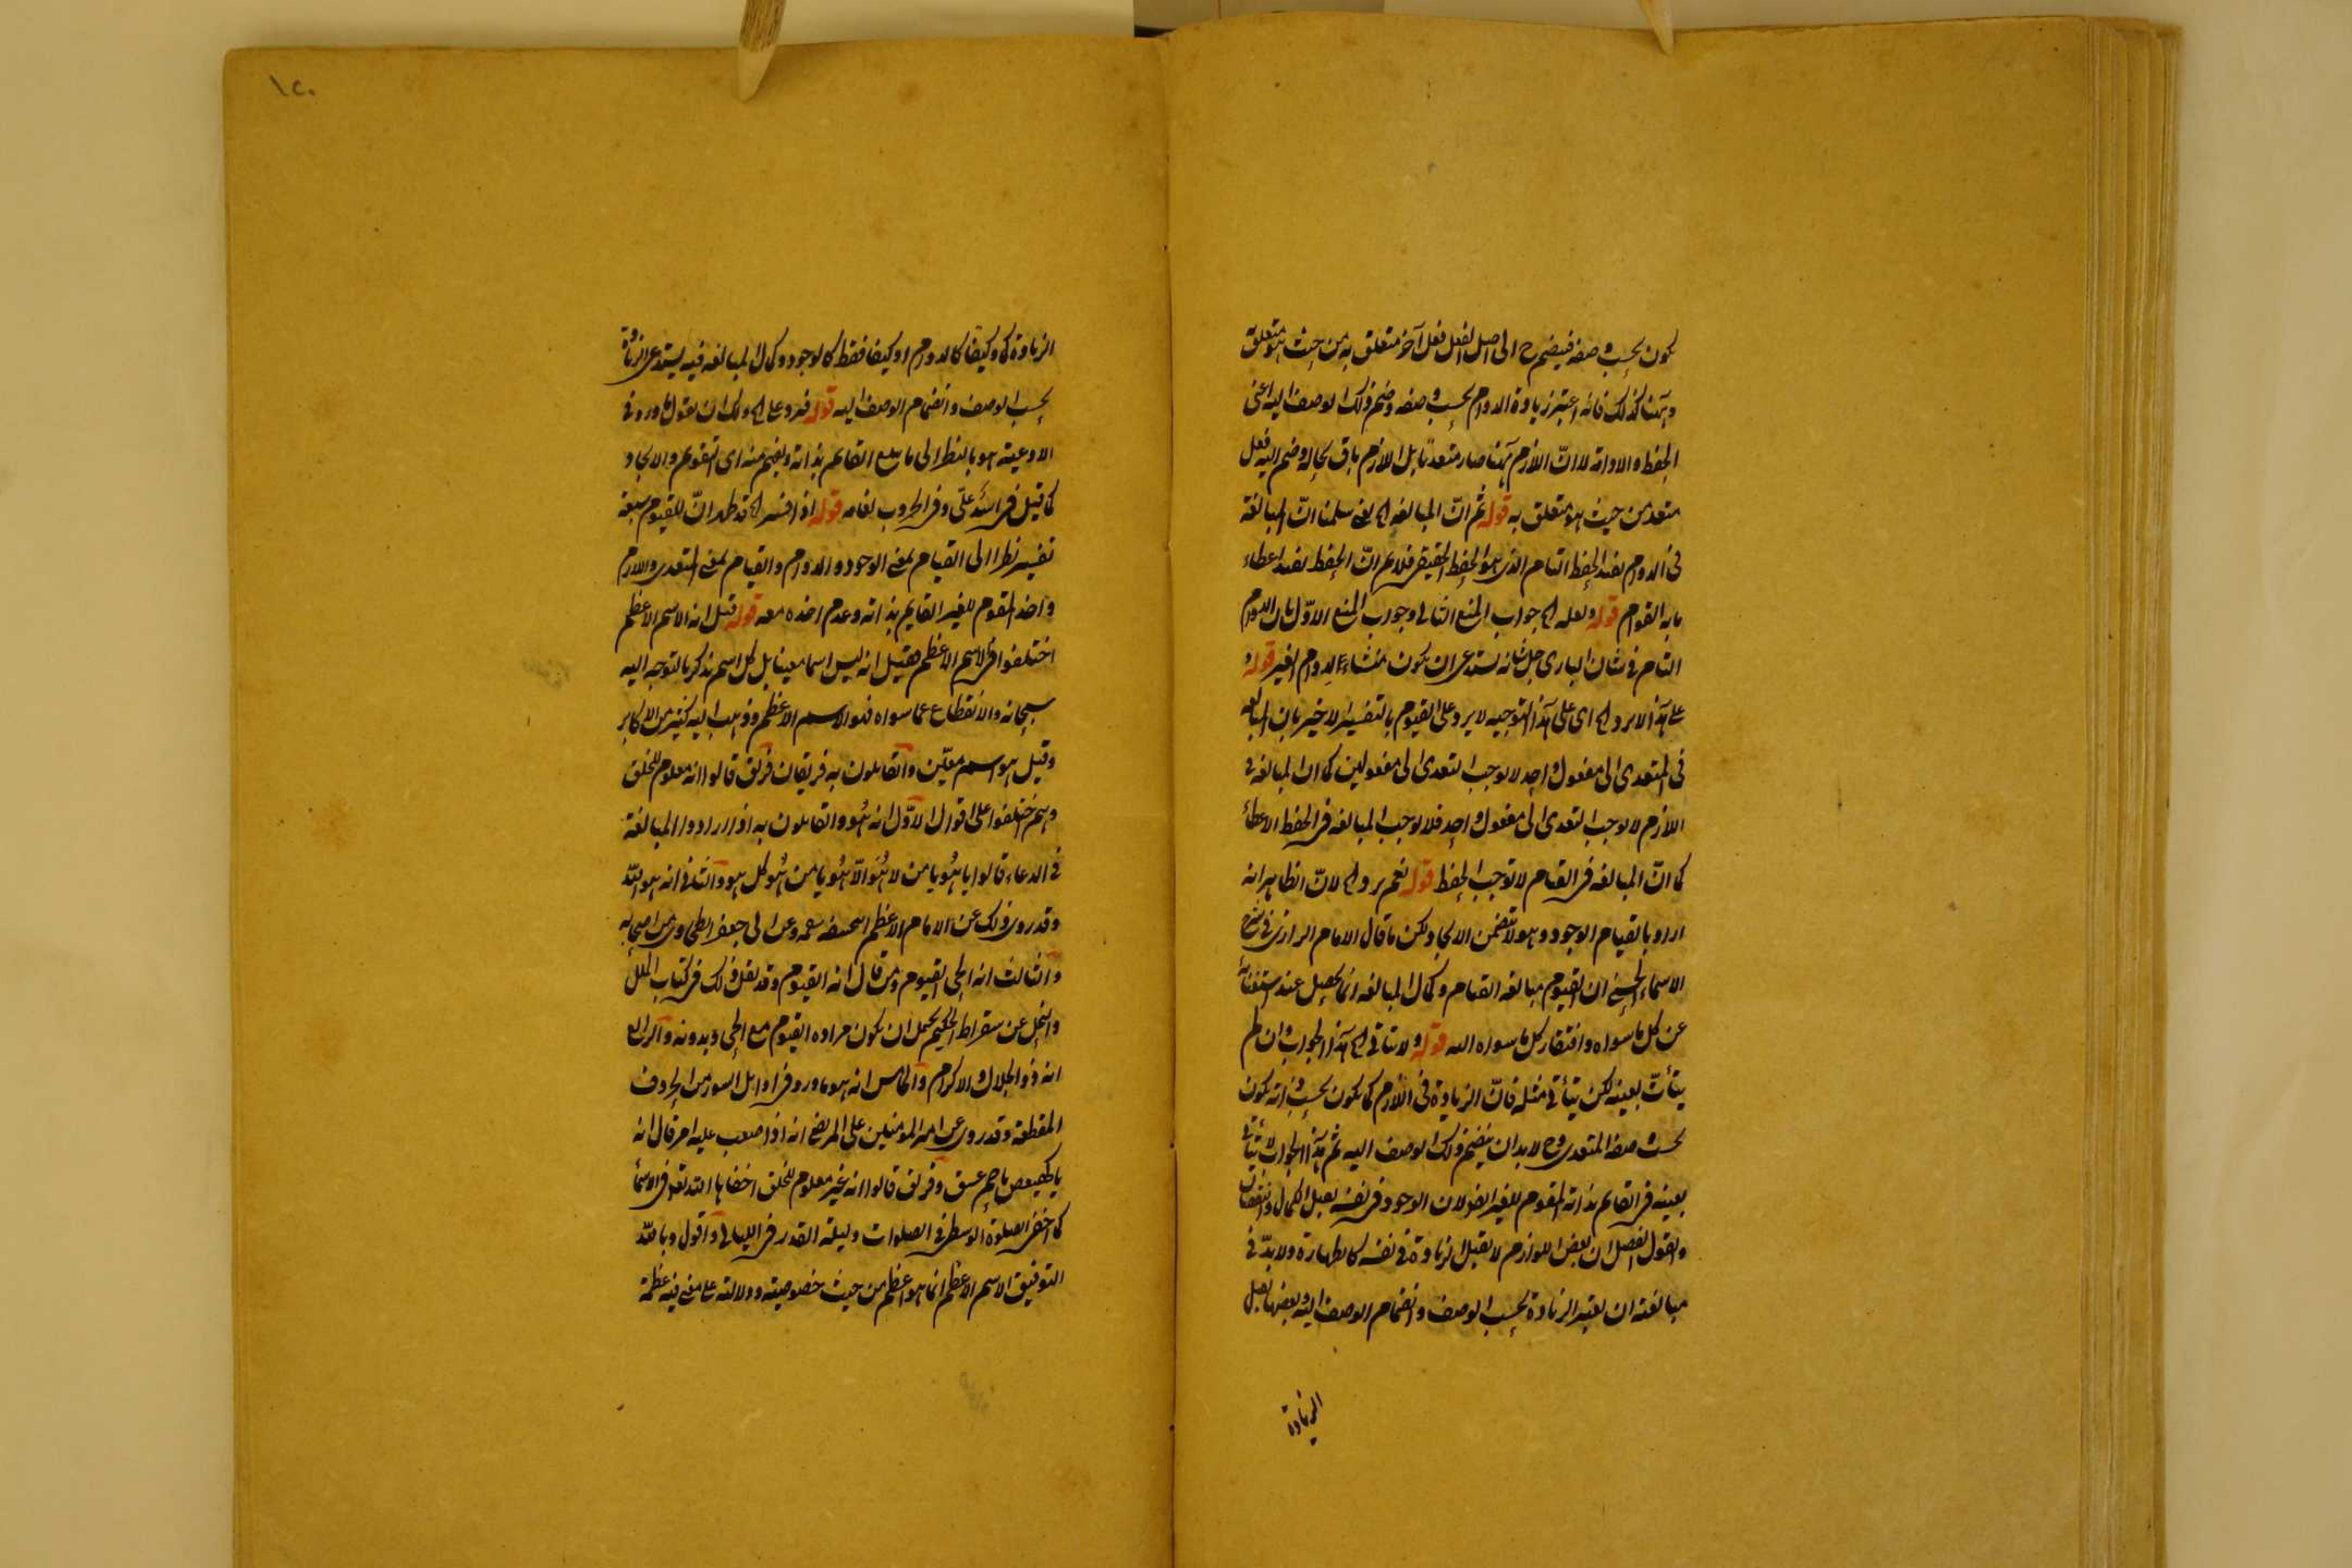 يكون بحسب صفة فينضم ح الى اصل الفعل فعل آخر متعلق به من حيث هو متعلق
وههنا كذلك فانه اعتبر زيادة الدوام بحسب صفة وضم ذلك الوصف اليه اعنى
الحفظ والادامة لا ان اللازم ههنا صار متعديا بل اللازم باق بحاله وضم اليه فعل
متعد من حيث هو متعلق به قوله ثم ان المبالغة الخ يعنى سلمنا ان المبالغة
فى الدوام يفيد الحفظ التام الذى هو الحفظ الحقيقى فلا نم ان الحفظ يفيد اعطاء
ما به القوام قوله ولعله الخ جواب المنع الثانى وجواب المنع الاول بان الدوام
التام فى شان البارى جل شانه يستدعى ان يكون منشاء لدوام الغير قوله و
على هذا لا يرد الخ اى على هذا التوجيه لا يرد على القيوم بالتفسير الاخير بان المبالغة
فى المتعدى الى مفعول واحد لا يوجب التعدى الى مفعولين كما ان المبالغة فى
اللازم لا يوجب التعدى الى مفعول واحد فلا يوجب المبالغة فى الحفظ الاعطاء
كما ان المبالغة فى القيام لا توجب الحفظ قوله نعم يرد الخ لان الظاهر انه
اراد بالقيام الوجود وهو لا يتضمن الايجاد لكن ما قال الامام الرازى فى شرح
الاسماء الحسنى ان القيوم مبالغة القيام وكمال المبالغة انما يحصل عند استغنائه
عن كل ما سواه وافتقار كل ما سواه اليه قوله ولا يتأتى الخ هذا الجواب وان لم
يتأت بعينه لكن يتأتى مثله فان الزيادة فى اللازم كما يكون بحسب ذاته يكون
بحسب صفة المتعدى وح لا بد ان ينضم ذلك الوصف اليه ثم هذا الجواب لا يتأتى
بعينه فى القائم بذاته المقوم لغيره لان الوجود فى نفسه يقبل الكمال والنقصان
ونقول الفصل ان بعض اللوازم لا يقبل الزيادة فى نفسه كالطهارة ولا بد فى
مبالغته ان يعتبر الزيادة بحسب الوصف وانضمام الوصف اليه وبعضها يقبل
الزيادة
١٢٠
الزيادة كما وكيفا كالدوام او كيفا فقط كالوجود وكمال المبالغة فيه يستدعى الزيادة
بحسب الوصف وانضمام الوصف اليه قوله فيرد على الخ ولك ان تقول ما ورد فى
الادعية هو بالنظر الى ما القائم بذاته ويفهم منه اى التقويم والايجاد
كما قيل فى اسد على وفى الحروب نعامة قوله اذا فسر الخ قد ظهر ان للقيوم سبعة
تفسير نظرا الى القيام بمعنى الوجود والدوام والقيام بمعنى المتعدى واللازم
واخذ المقوم للغير القايم بذاته وعدم اخذه معه قوله قيل انه الاسم الاعظم
اختلفوا فى الاسم الاعظم فقيل انه ليس اسما معينا بل كل اسم يذكر بالتوجه اليه
سبحانه والانقطاع عما سواه فهو الاسم الاعظم وذهب اليه كثير من الاكابر
وقيل هو اسم معين والقائلون به فريقان فريق قالوا انه معلوم للخلق
وهم اختلفوا على اقوال الاول انه هو والقائلون به اذا ارادوا المبالغة
فى الدعاء قالوا يا هو يا من لا هو الا هو يا من هو كل هو والثانى انه هو الله
وقد روى ذلك عن الامام الاعظم ابى حنيفة وعن ابى جعفر الطحاوى من اصحابه
والثالث انه الحى القيوم ومن قال انه القيوم وقد نقل ذلك فى كتاب الملل
والنحل عن سقراط الحكيم يحتمل ان يكون مراده القيوم مع الحى وبدونه والرابع
انه ذو الجلال والاكرام والخامس انه هو ما ورد فى اوايل السور من الحروف
المقطعة وقد روى عن امير المؤمنين على المرتضى انه اذا صعب عليه امر قال انه
يا كهيعص يا حم عسق وفريق قالوا انه غير معلوم للخلق اخفاها الله تعالى فى الاسماء
كما اخفى الصلوة الوسطى فى الصلوات وليلة القدر فى الليالى واقول وبالله
التوفيق الاسم الاعظم انما هو اعظم من حيث خصوصيته ودلالته على معنى فيه عظمة